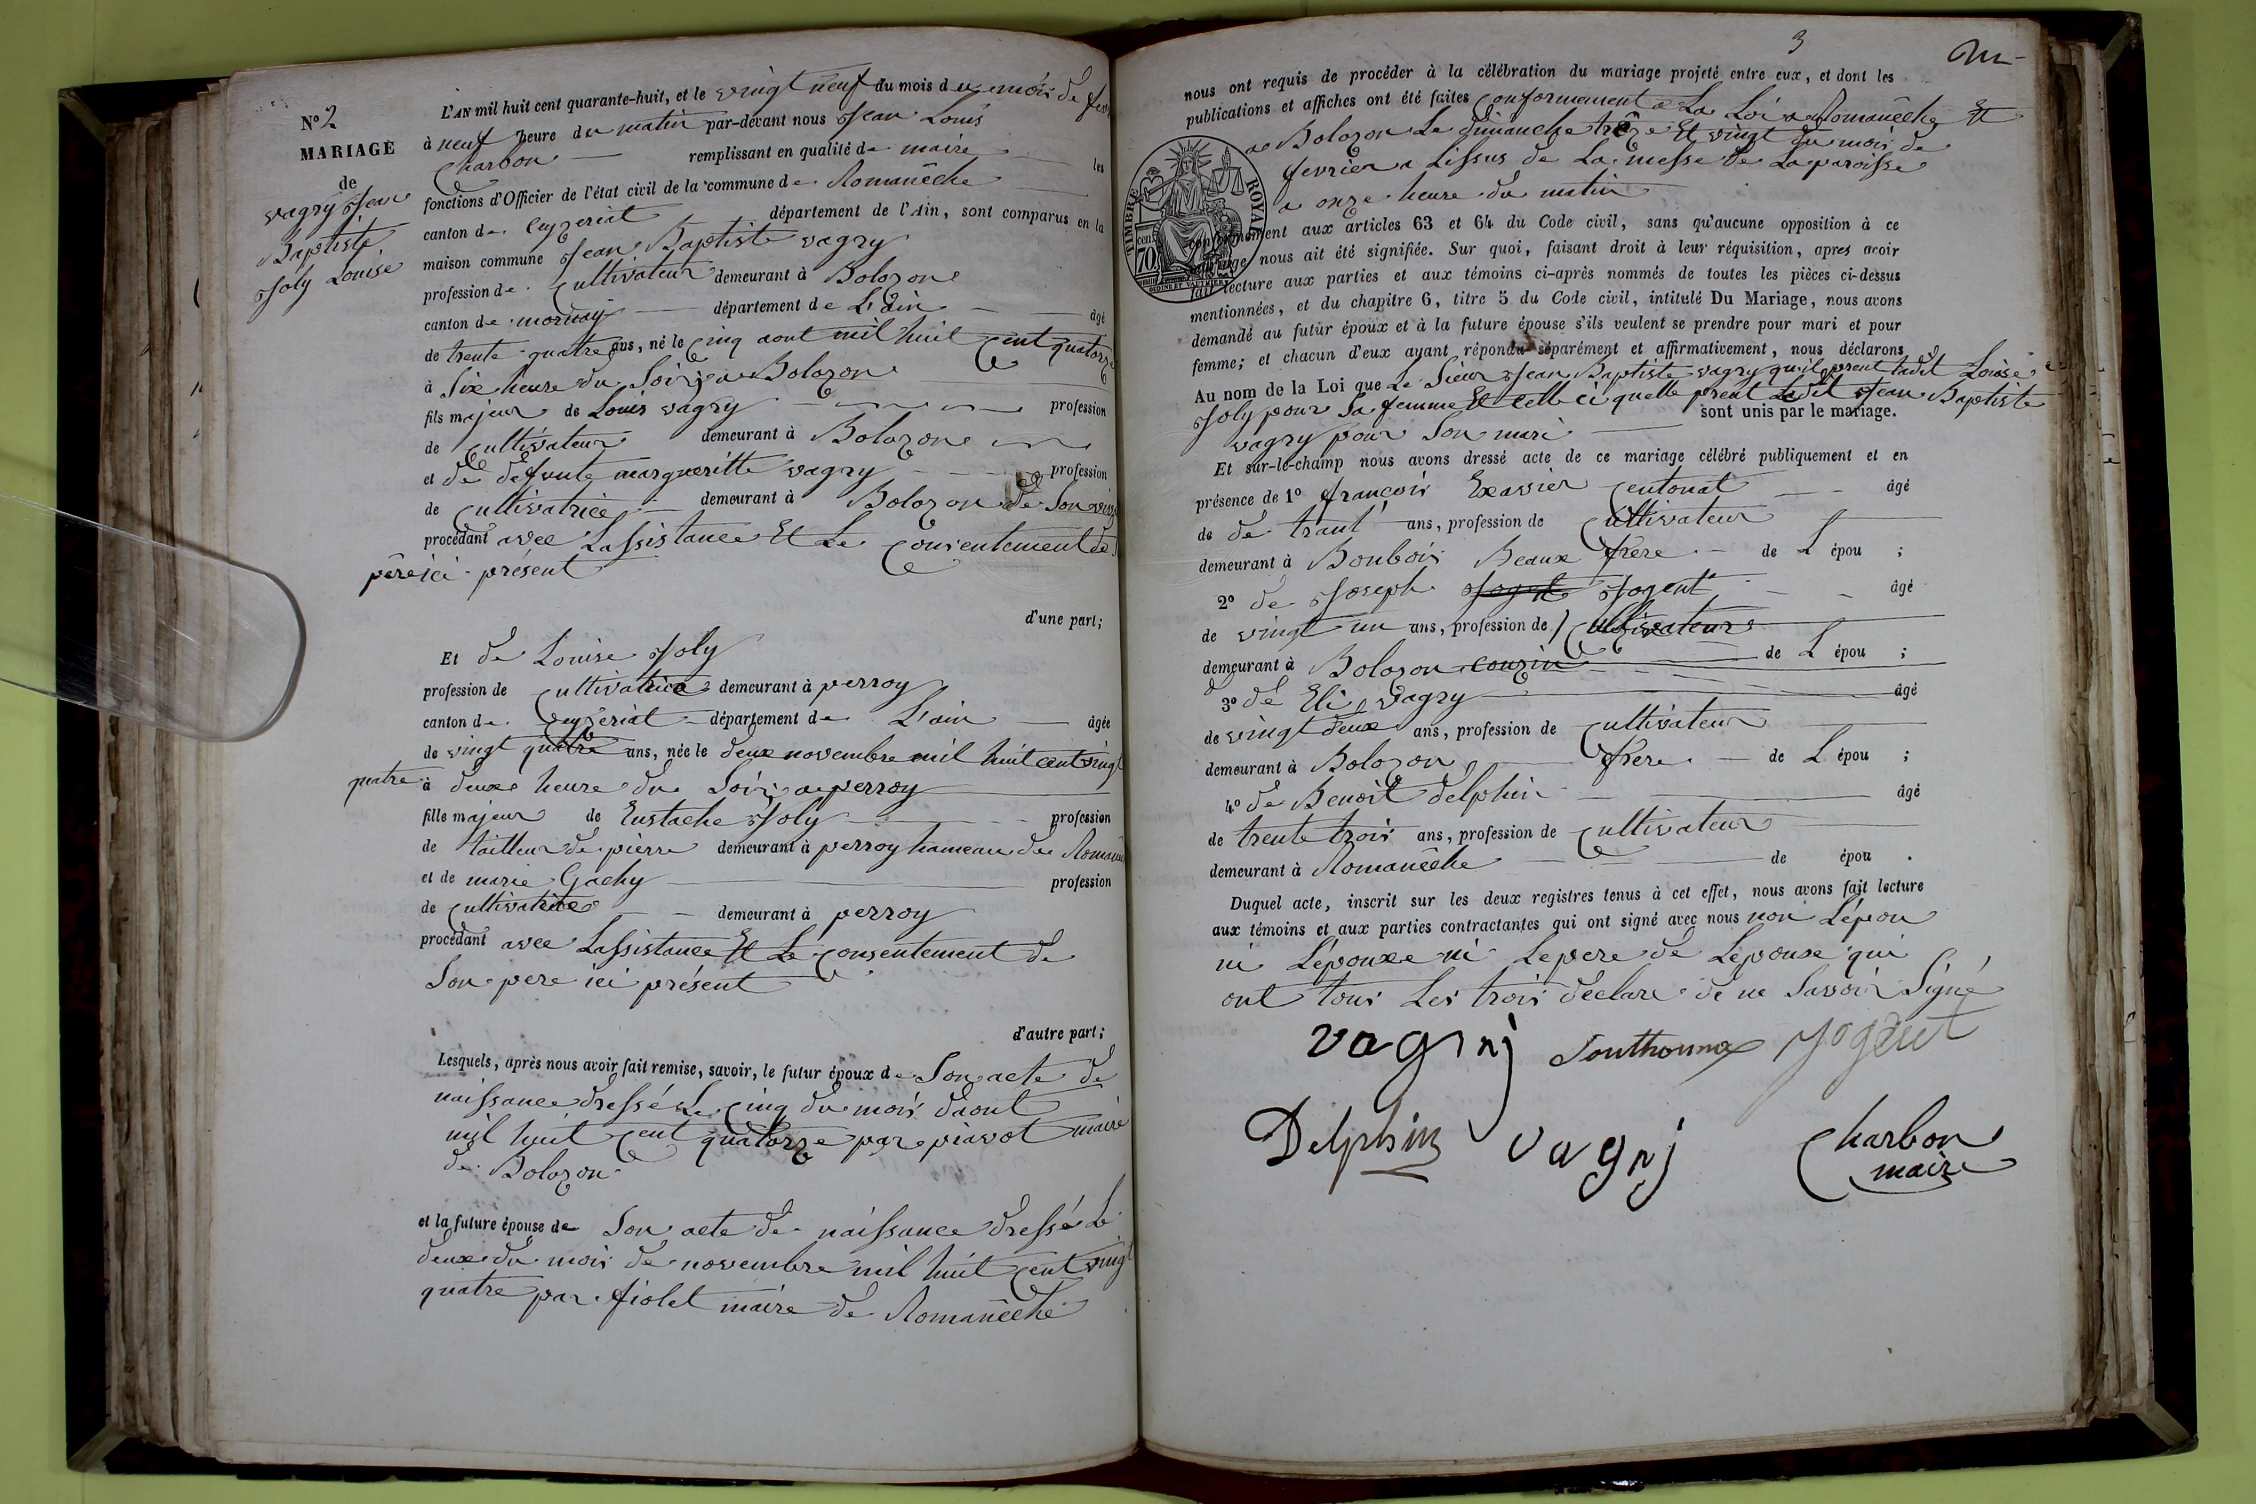 N° 2
MARIAGE
de
vagry Jean
Baptiste
Joly Louise
L'AN mil huit cent quarante-huit, et le vingt neuf du mois du mois de
à neuf heure du matin par-devant nous Jean Louis
Charbon remplissant en qualité de maire les
fonctions d'Officier de l'état civil de la commune de Romanêche
canton de Ceyzeriat département de l'Ain, sont comparus en la
maison commune Jean Baptiste vagry
profession de Cultivateur demeurant à Bolozon
canton de mornay département de L'ain âgé
de trente quatre ans, né le Cinq aout mil huit Cent quatorze
à Six heure du Soir a Bolozon
fils majeur de Louis vagry profession
de Cultivateur demeurant à Bolozon
et de defunte margueritte vagry profession
de Cultivatrice demeurant à Bolozon de Son
procédant avec Lassistance Et Le Consentement de
père ici présent
d'une part;
Et de Louise Joly
profession de Cultivatrice demeurant à perroy
canton de Ceyzeriat département de L'ain âgée
de vingt quatre ans, née le deux novembre mil huit cent vingt
quatre à deux heure du Soir a perroy
fille majeur de Eustache Joly profession
de tailleur de pierre demeurant à perroy hameau de
et de marie Gachy profession
de Cultivatrice demeurant à perroy
procédant avec Lassistance Et Le Consentement de
Son pere ici présent
d'autre part;
Lesquels, après nous avoir fait remise, savoir, le futur époux de Son acte de
naissance dressé Le Cinq du mois daout
mil huit Cent quatorze par piavot maire
de Bolozon
et la future épouse de Son acte de naissance dressé Le
deux du mois de novembre mil huit Cent vingt
quatre par fiolet maire de Romanêche
3
nous ont requis de procéder à la célébration du mariage projeté entre eux, et dont les
publications et affiches ont été faites Conformement a La Loi a Romanêche Et
a Bolozon Le dimanche trêze Et vingt du mois de
fevrier a Lissus de La messe de La paroisse
a onze heure du matin
TIMBRE ROYAL
70 cen.
conformément aux articles 63 et 64 du Code civil, sans qu'aucune opposition à ce
mariage nous ait été signifiée. Sur quoi, faisant droit à leur réquisition, apres avoir
fait lecture aux parties et aux témoins ci-après nommés de toutes les pièces ci-dessus
mentionnées, et du chapitre 6, titre 5 du Code civil, intitulé Du Mariage, nous avons
demandé au futur époux et à la future épouse s'ils veulent se prendre pour mari et pour
femme; et chacun d'eux ayant répondu séparément et affirmativement, nous déclarons
Au nom de la Loi que Le Sieur Jean Baptiste vagry qu'il prent ladit Loiose
Joly pour Sa femme Et Celle ci quelle prent Ledit Jean Baptiste
sont unis par le mariage.
vagry pour Son mari
Et sur-le-champ nous avons dressé acte de ce mariage célébré publiquement et en
présence de 1° françois Exavier Centonat âgé
de de trant ans, profession de Cultivateur
demeurant à Bonbois Beaux frère de L épou ;
2° de Joseph Jogent âgé
de vingt un ans, profession de Cultivateur
demeurant à Bolozon couzin de L épou ;
3° de Eli vagry âgé
de vingt deux ans, profession de Cultivateur
demeurant à Bolozon frère de L épou ;
4° de Benoit delphin âgé
de trente trois ans, profession de Cultivateur
demeurant à Romanêche de épou .
Duquel acte, inscrit sur les deux registres tenus à cet effet, nous avons fait lecture
aux témoins et aux parties contractantes qui ont signé avec nous non Lépou
ni Lépouxe ni Le pere de Lépouse qui
ont tous Les trois déclare de ne Savoir Signé
vagry Jogent
Delphin vagry Charbon
maire